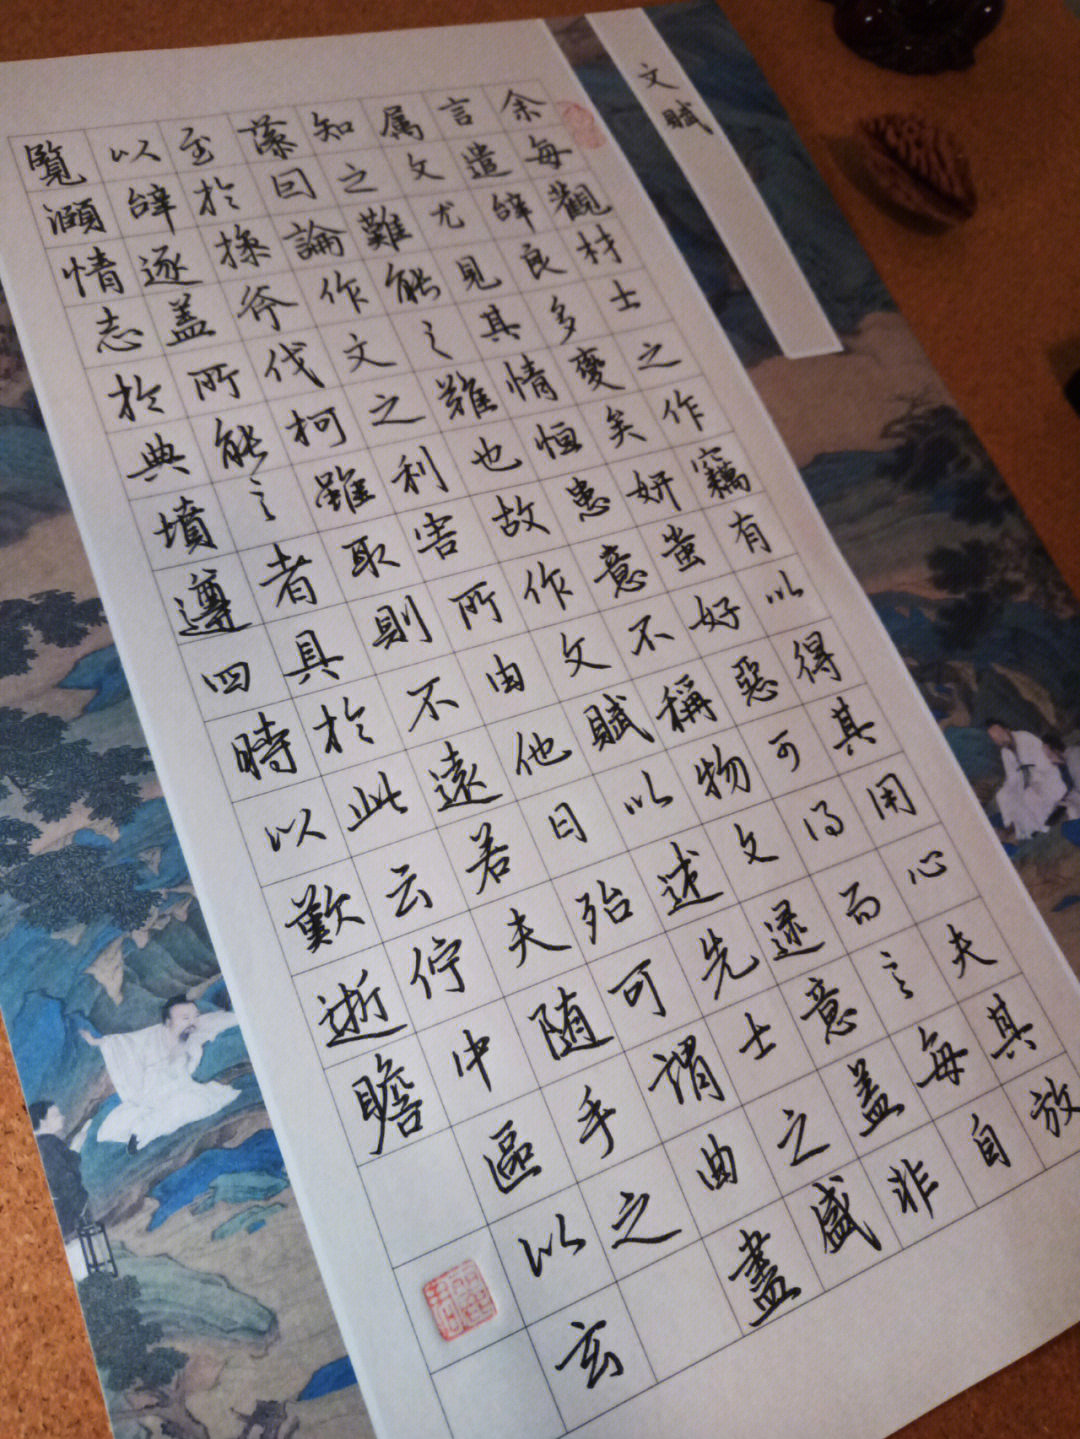 文賦
余每觀材士之作竊有以得其用心夫其放
言遣辭良多變矣妍蚩好惡可得而言每自
属文尤見其情恒患意不稱物文逮意盖非
知之難能之難也故作文賦以述先士之盛
藻因論作文之利害所由他日殆可謂曲盡
至於操斧伐柯雖取則不遠若夫随手之
以辭逐盖所能言者具於此云佇中區以玄
覽頤情志於典墳遵四時以歎逝瞻